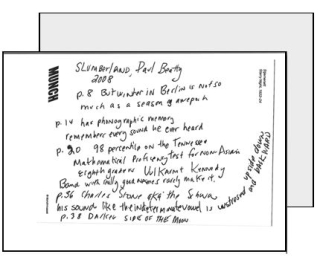 SLUMBERLAND, Paul Beatty
2008
p.8 But winter in Berlin is not so
much as a season
p.14 has phonographic memory
remember every sound he ever heard
p.20 98 percentile on the Tennessee
Mathematical Proficiency Test for Non-Asian
Eighth graders
Band with really good names rarely make it.
p.36 Charles Stone aka the Schwa
his sound like the indeterminate vowel is unstressed
p.38 DARKER SIDE OF THE MOON
MUNCH